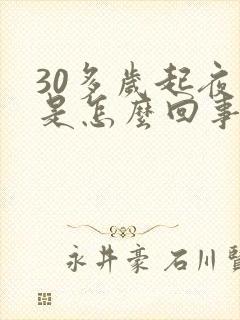 30多歲起夜
是怎麼回事
永井豪 石川賢